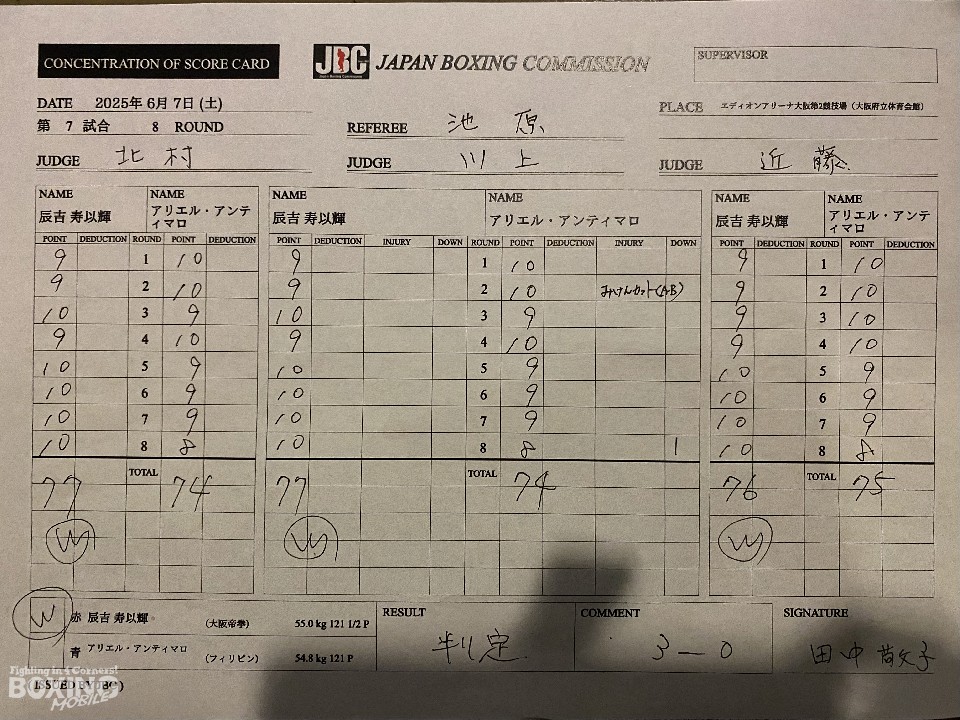 CONCENTRATION OF SCORE CARD
JBC JAPAN BOXING COMMISSION
Japan Boxing Commission
SUPERVISOR
DATE 2025年 6月 7日 (土)
PLACE エディオンアリーナ大阪第2競技場（大阪府立体育会館）
第 7 試合 8 ROUND
REFEREE 池原
JUDGE 北村
JUDGE 川上
JUDGE 近藤
NAME NAME NAME NAME NAME NAME
辰吉 寿以輝 アリエル・アンティマロ 辰吉 寿以輝 アリエル・アンティマロ 辰吉 寿以輝 アリエル・アンティマロ
POINT DEDUCTION ROUND POINT DEDUCTION POINT DEDUCTION INJURY DOWN ROUND POINT DEDUCTION INJURY DOWN POINT DEDUCTION ROUND POINT DEDUCTION
9 1 10 9 1 10 9 1 10
9 2 10 9 2 10 みけんカット(AB) 9 2 10
10 3 9 10 3 9 9 3 10
9 4 10 9 4 10 9 4 10
10 5 9 10 5 9 10 5 9
10 6 9 10 6 9 10 6 9
10 7 9 10 7 9 10 7 9
10 8 8 10 8 8 1 10 8 8
77 TOTAL 74 77 TOTAL 74 76 TOTAL 75
W W W
W 赤 辰吉 寿以輝 (大阪帝拳) 55.0 kg 121 1/2 P
青 アリエル・アンティマロ (フィリピン) 54.8 kg 121 P
RESULT 判定
COMMENT 3-0
SIGNATURE 田中
Fighting in 4 Corners!
BOXING
MOBILE
ISSUED BY JBC